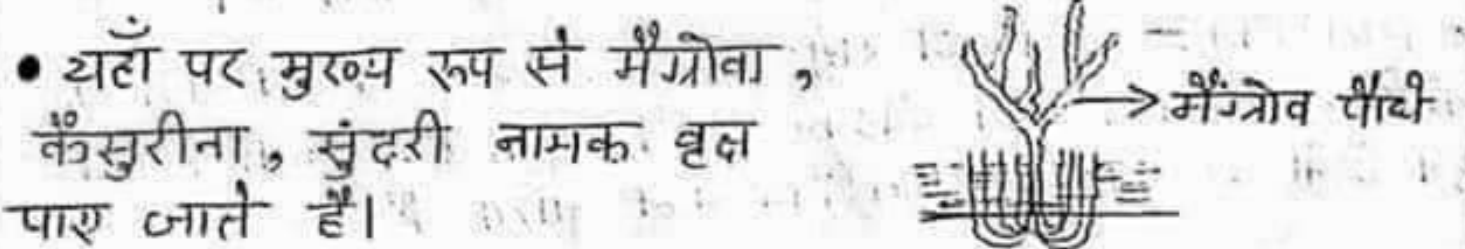 • यहाँ पर मुख्य रूप से मैंग्रोवा,
कैंसुरीना, सुंदरी नामक वृक्ष
पाए जाते हैं।
→ मैंग्रोव पौधे